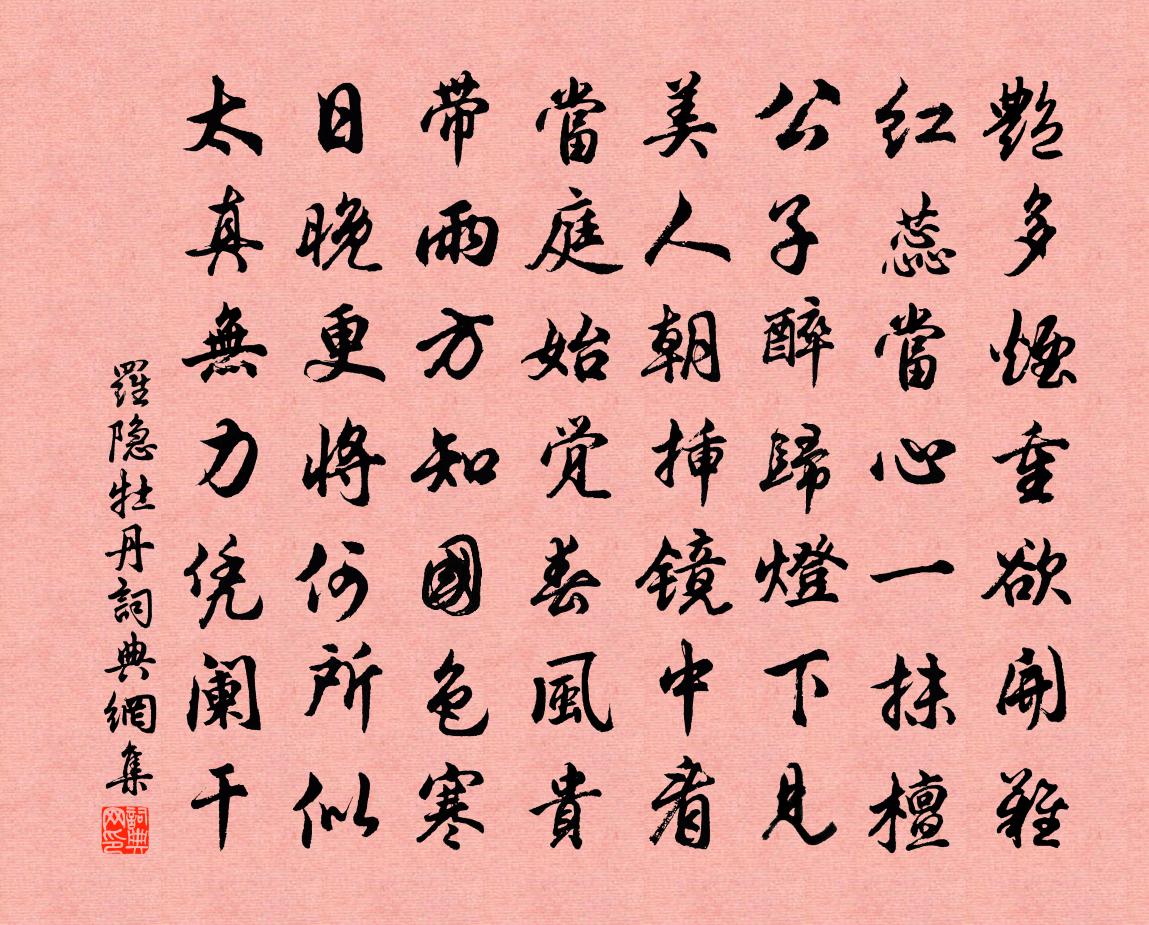 艷多煙重欲開難
紅蕊當心一抹檀
公子醉歸燈下見
美人朝插鏡中看
當庭始觉春風貴
帶雨方知國色寒
日晚更將何所似
太真無力凭阑干
羅隐牡丹詞典網集
詞典网印